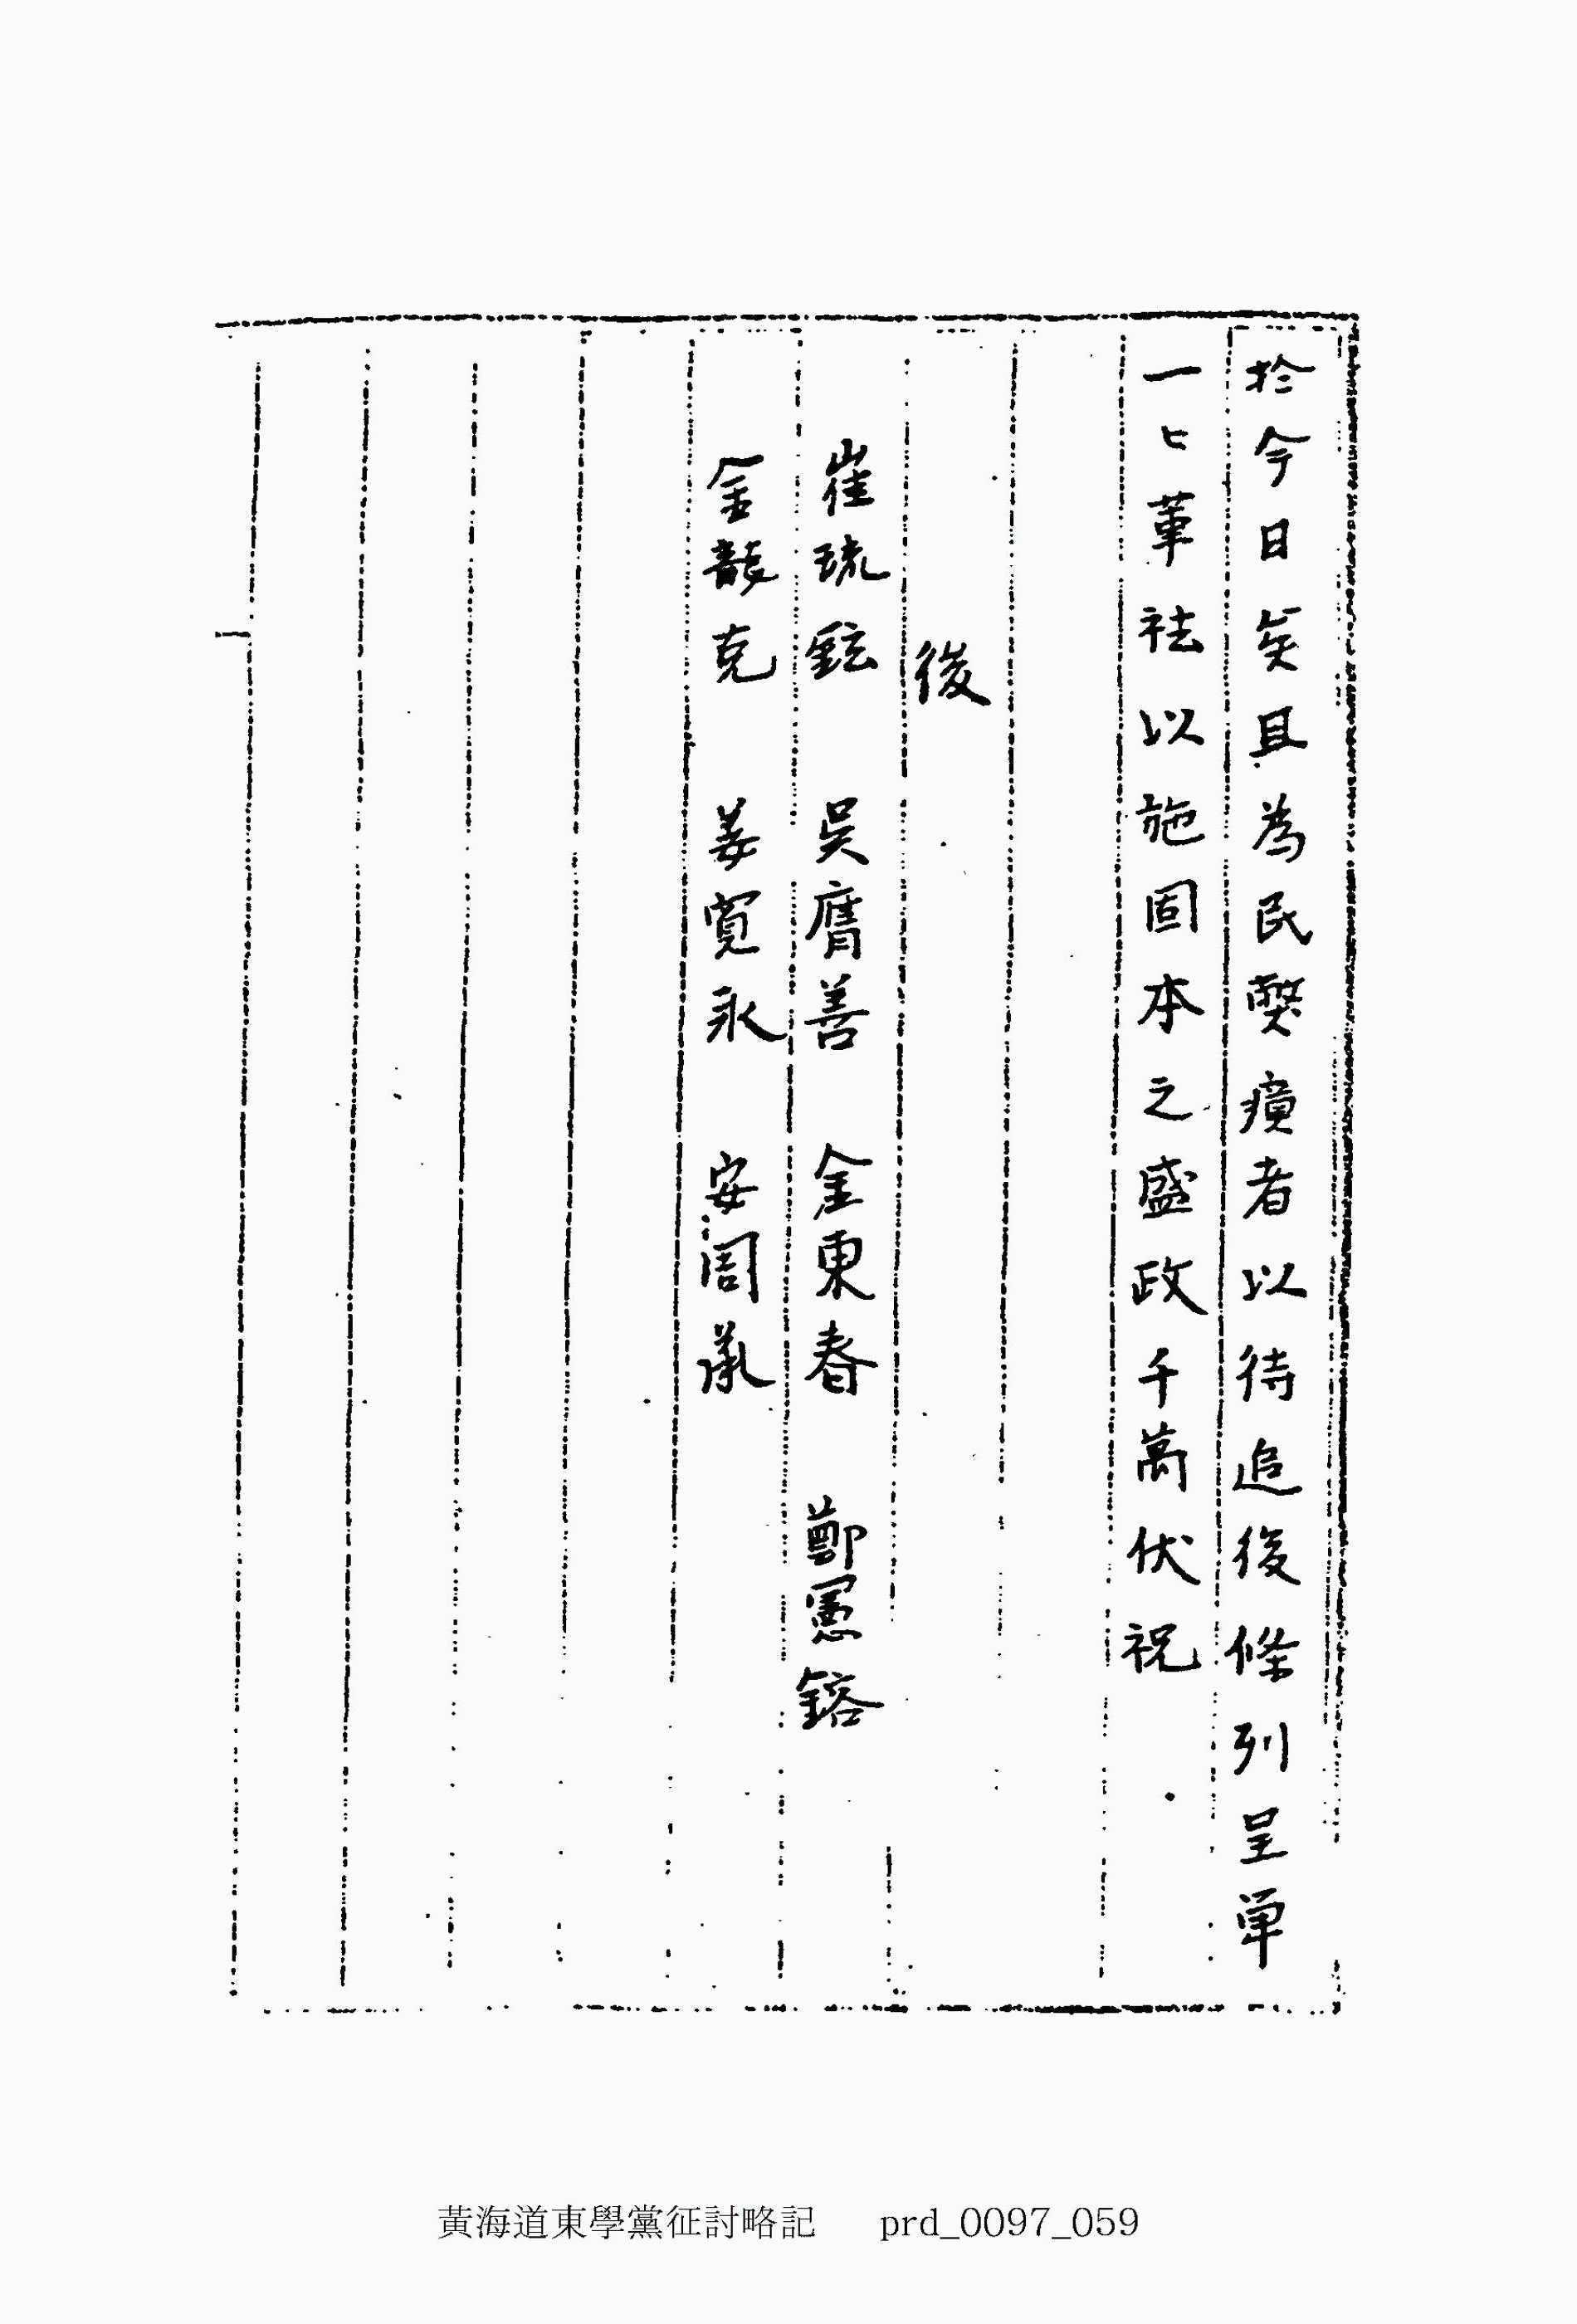 於今日矣且為民弊瘼者以待追後條列呈単
一〻革祛以施固本之盛政千萬伏祝
後
崔琉鉉 吳膺善 金東春 鄭憲鎔
金龍克 姜寬永 安周承
黃海道東學黨征討略記 prd_0097_059